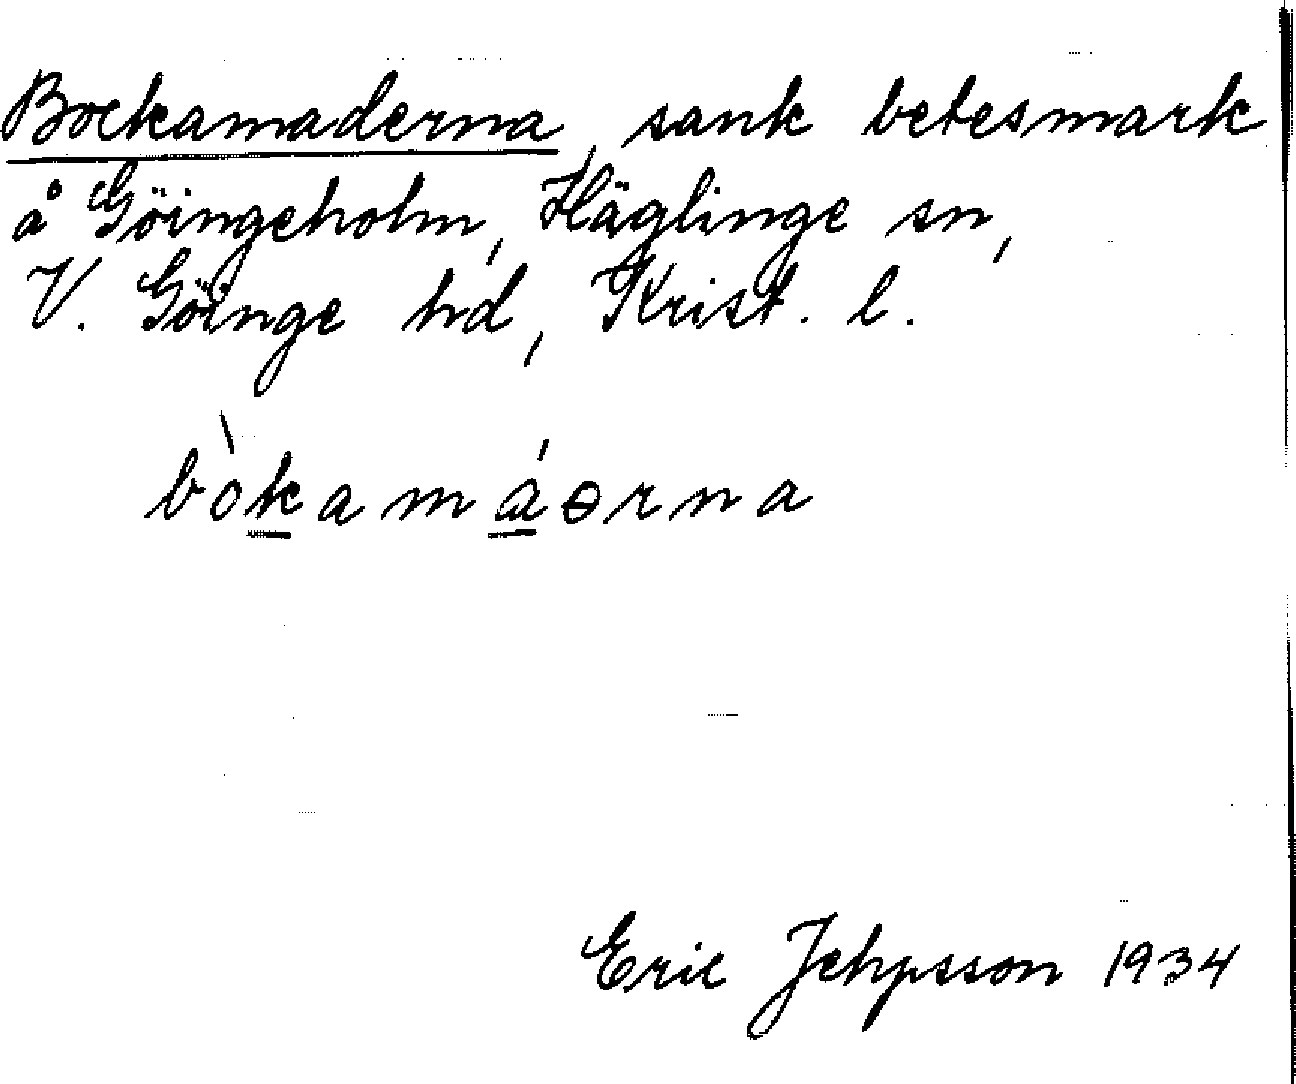 Bockamaderna, sank betesmark
å Göingeholm, Häglinge sn,
V. Göinge hd, Krist. l.
bòkamáɵrna
Eric Jehpsson 1934